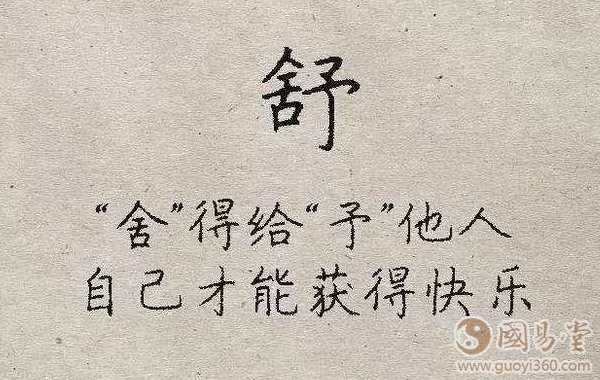 舒
“舍”得给“予”他人
自己才能获得快乐
國易堂
www.guoyi360.com